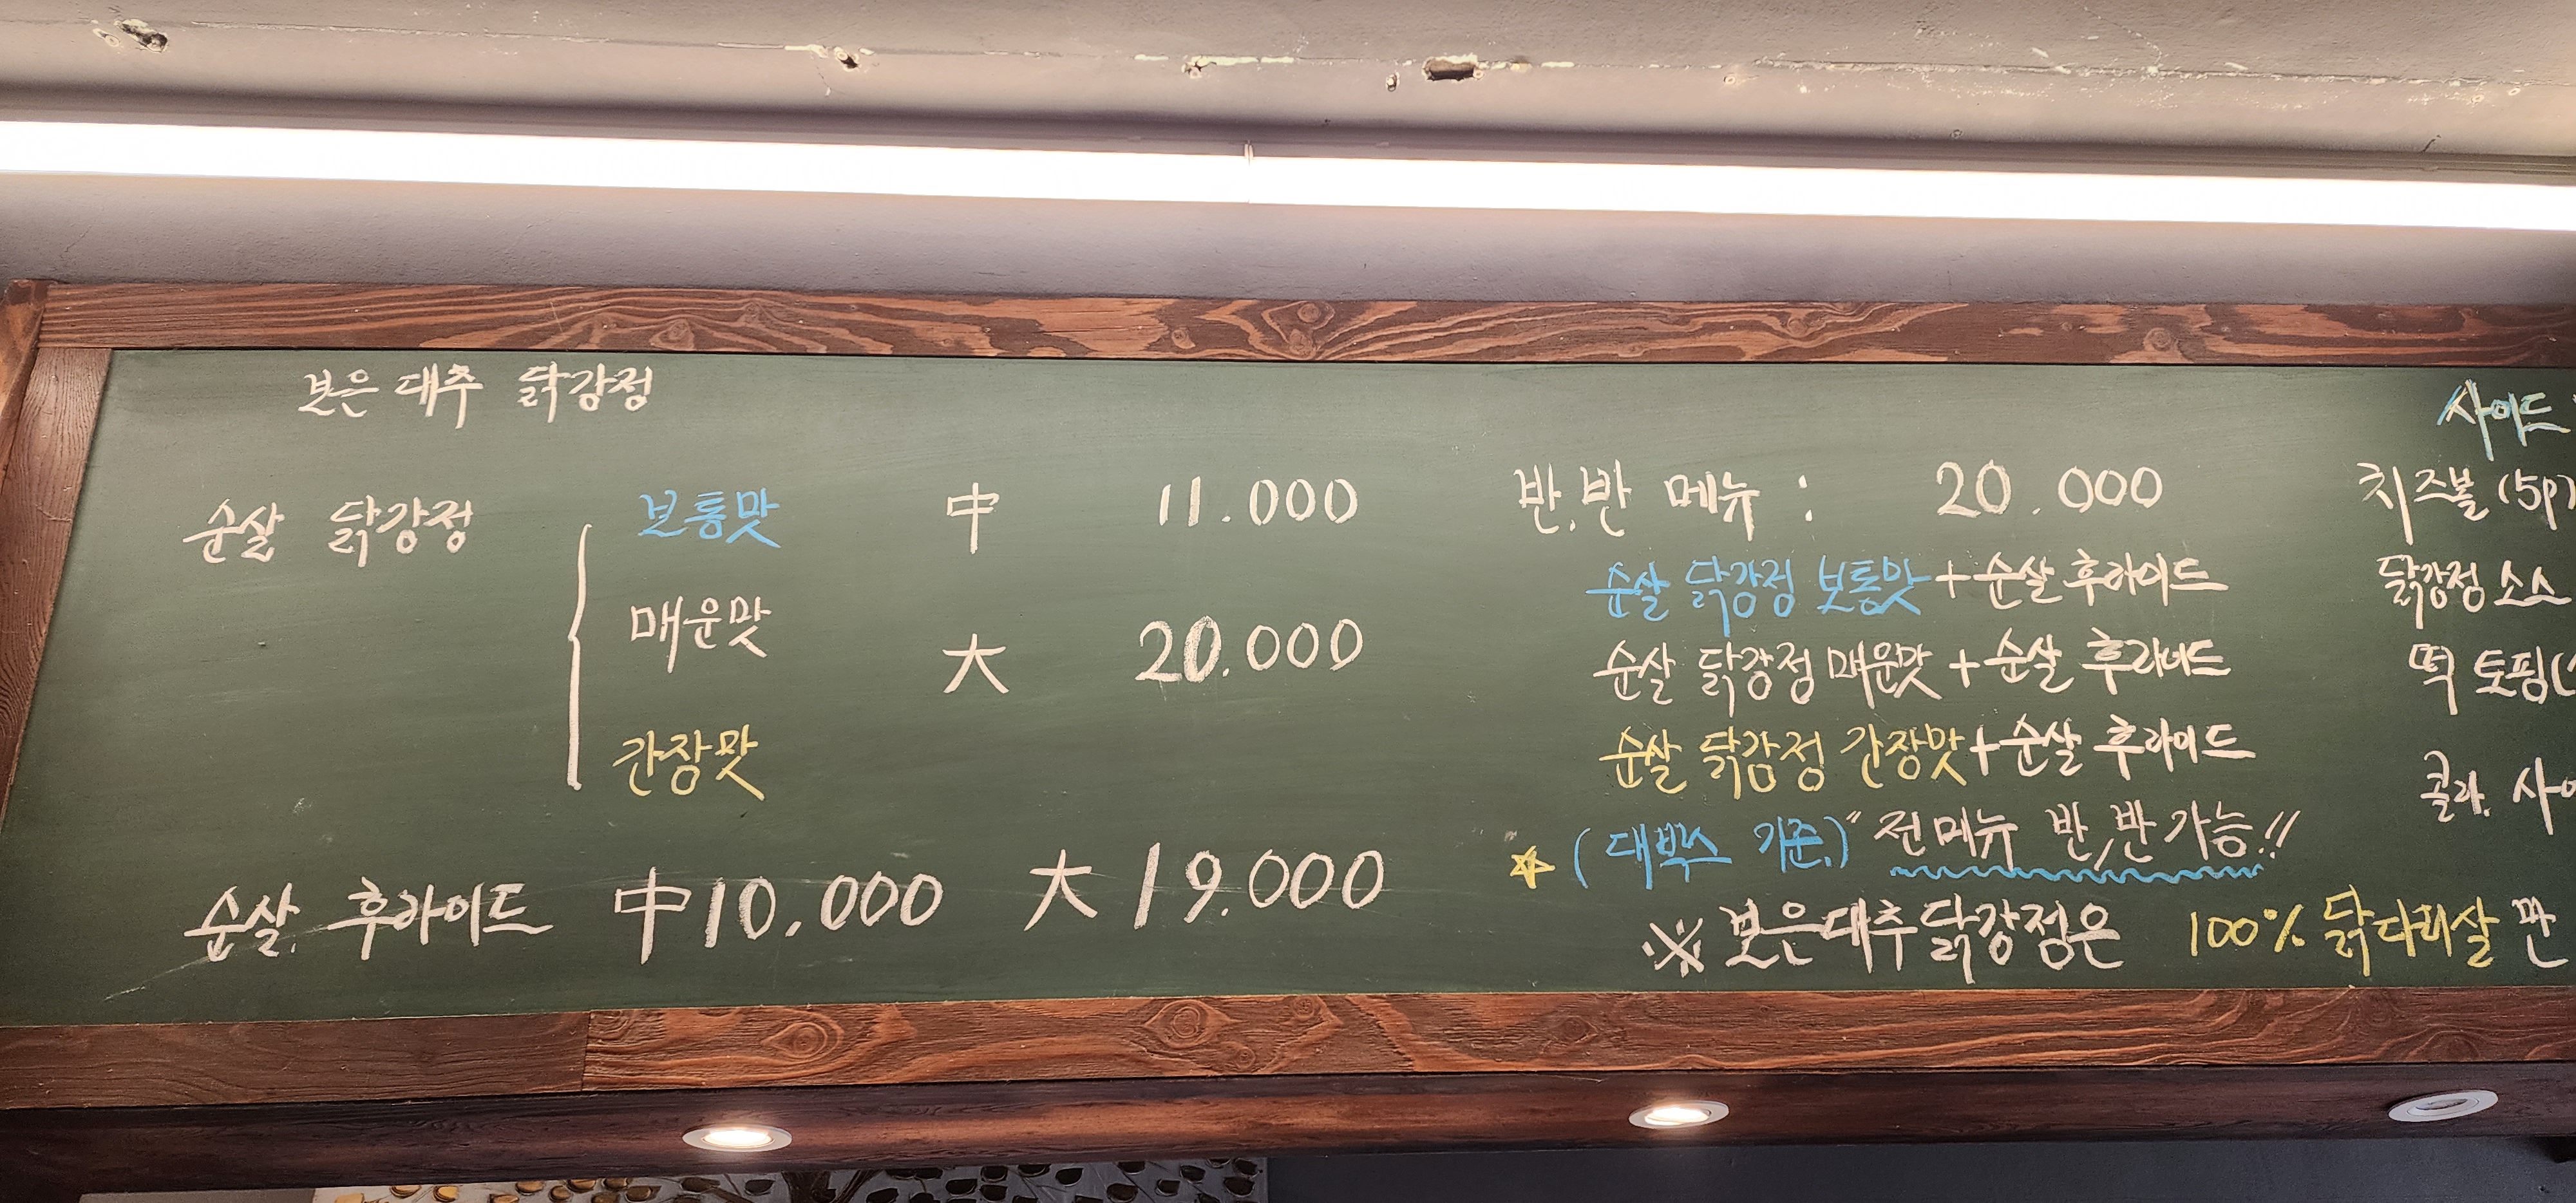 보은대추 닭강정
순살 닭강정
보통맛 中 11.000
매운맛 大 20.000
간장맛
순살. 후라이드 中10,000 大19.000
반.반 메뉴 : 20.000
순살 닭강정 보통맛+순살후라이드
순살 닭강정 매운맛+순살 후라이드
순살 닭감정 간장맛+순살 후라이드
☆(대박스 기준.)"전메뉴 반,반가능!!
※보은대추닭강정은 100% 닭다리살 만
사이드
치즈볼(5p)
닭강정소스
떡 토핑(
콜라. 사이